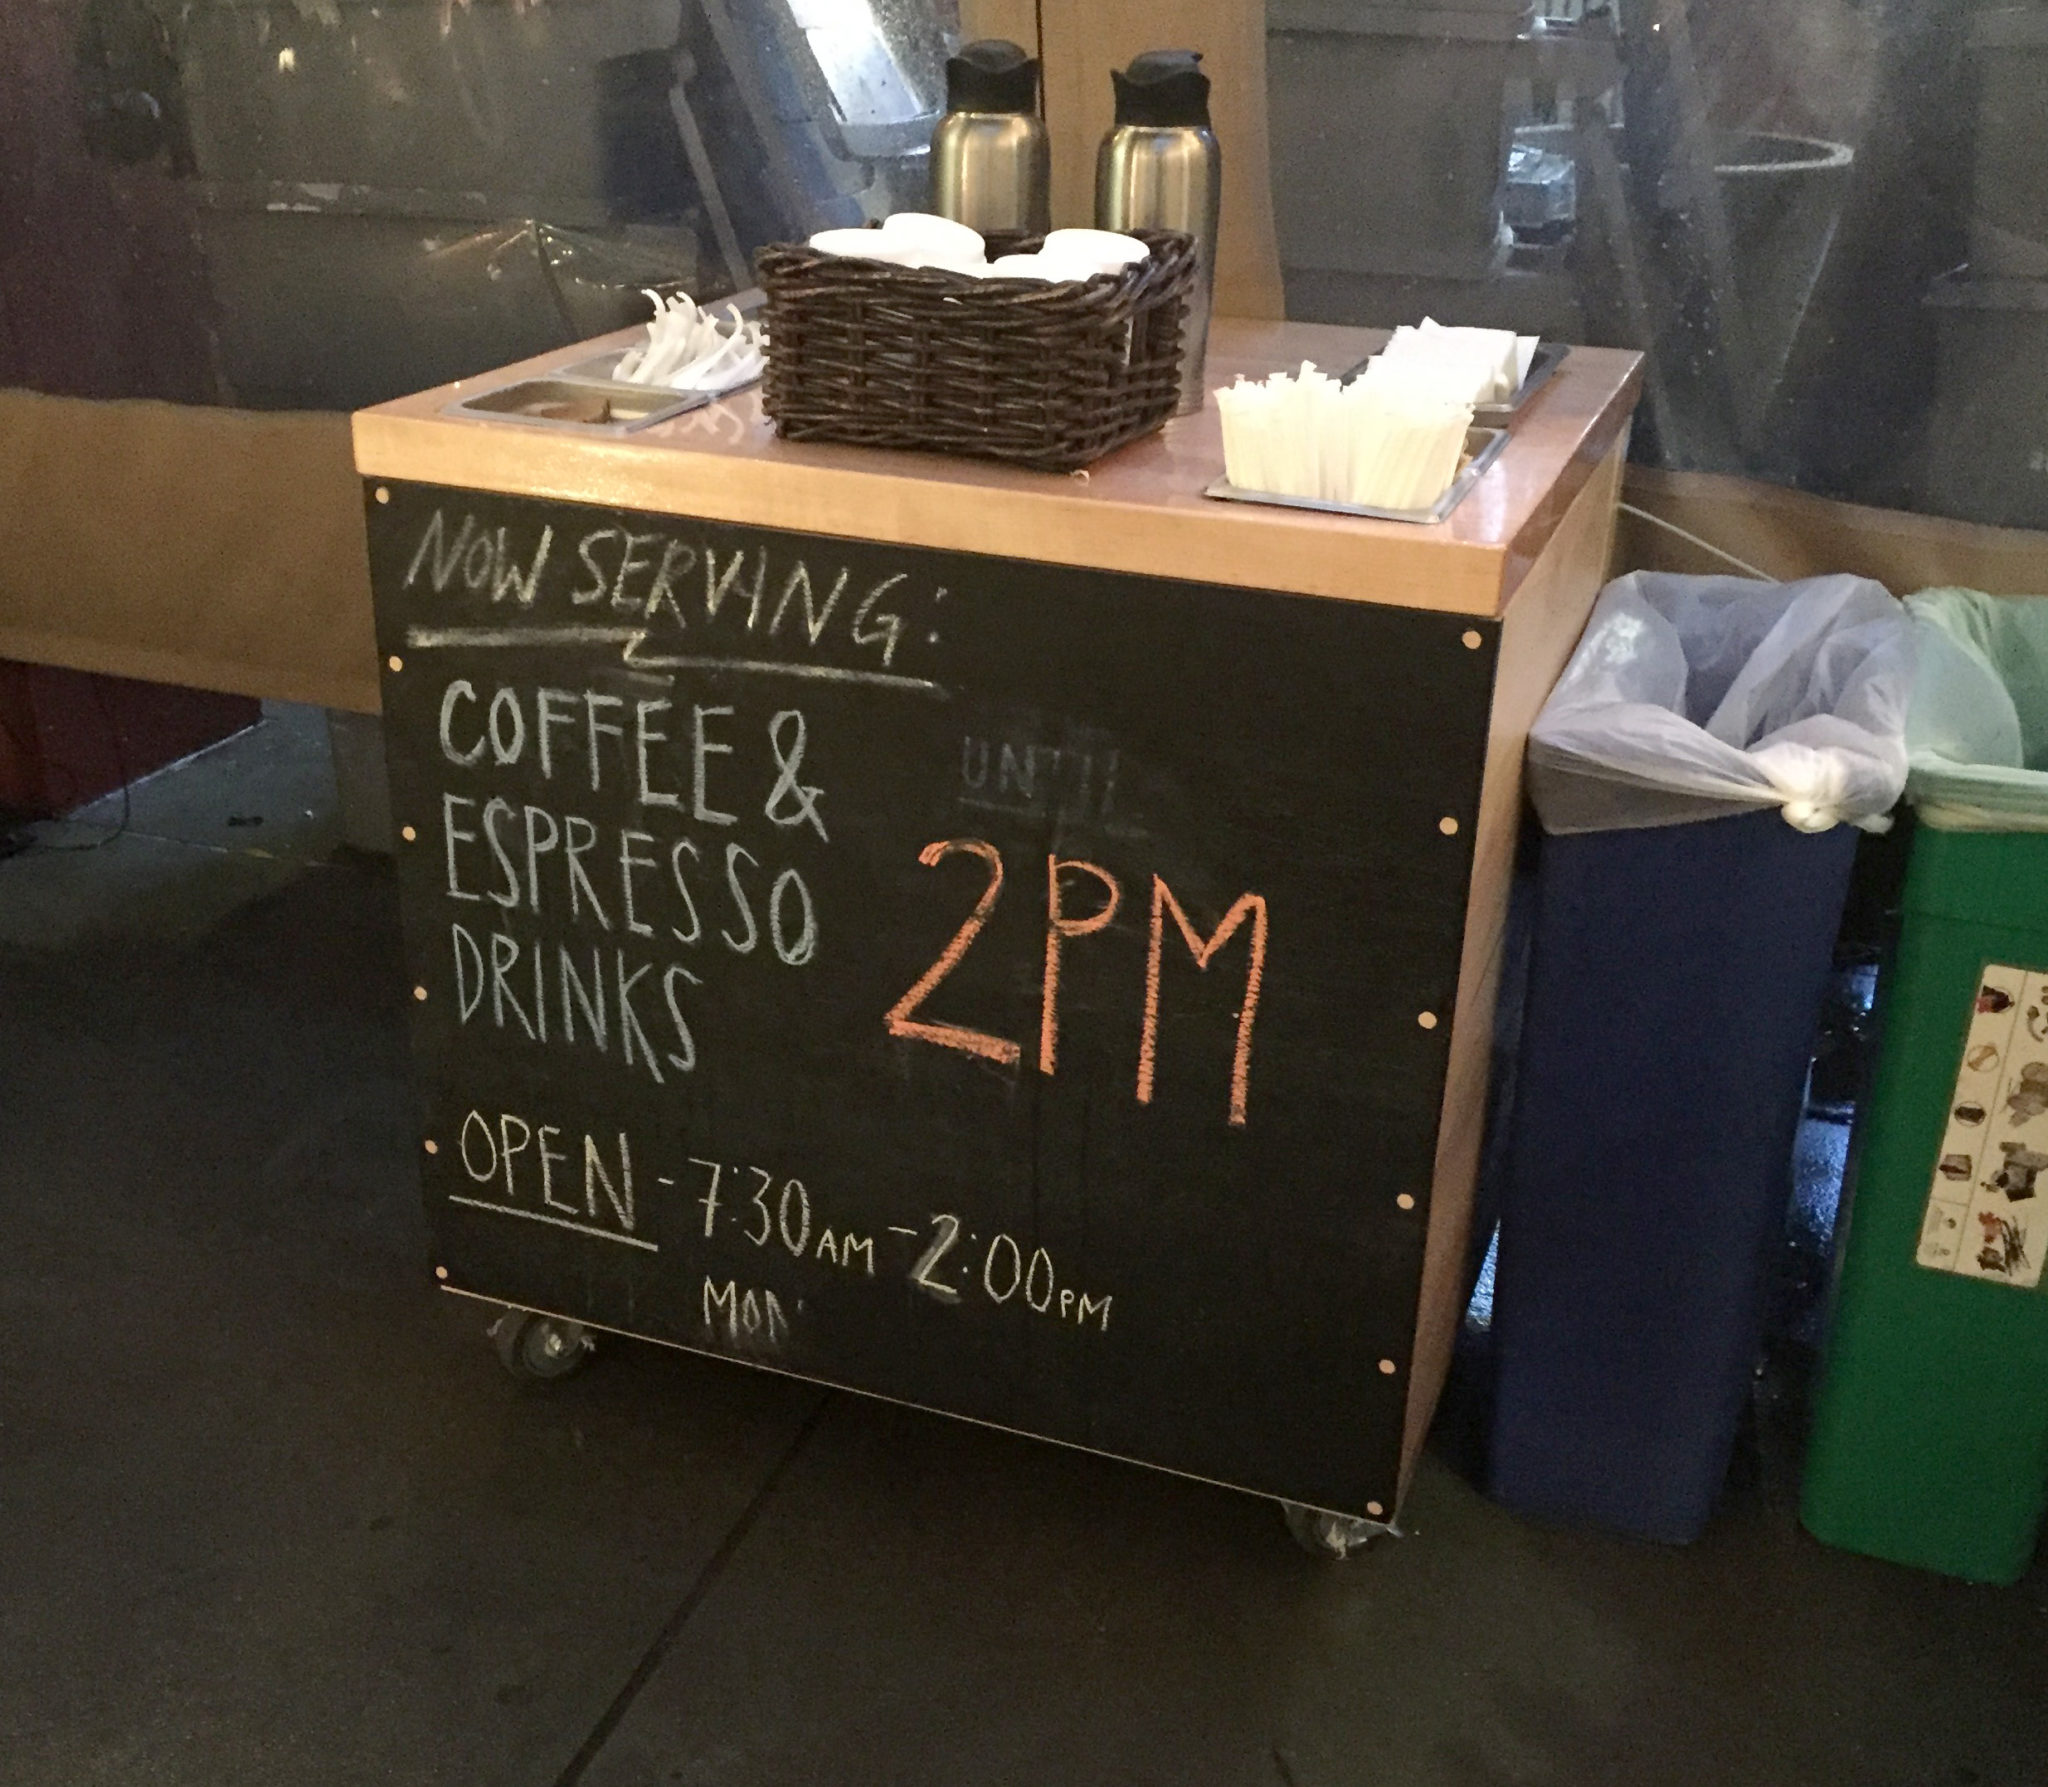 NOW SERVING:
COFFEE &
ESPRESSO
DRINKS
UNTIL
2PM
OPEN - 7:30AM - 2:00PM
MON